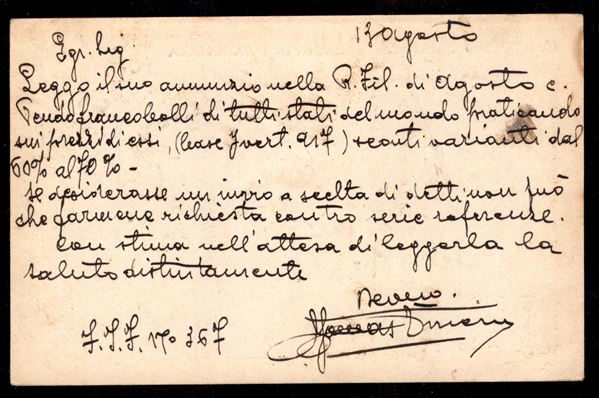 13 Agosto
Egr. Sig.
Leggo il suo annunzio nella R. Fil. di Agosto e.
Vendo francobolli di tutti stati del mondo praticando
sui prezzi di essi, (base Yvert. 917) sconti varianti dal
60% al 70% -
Se desiderasse un invio a scelta di detti non può
che farmene richiesta contro serie referenze.
Con stima nell'attesa di leggerla la
saluto distintamente
Devmo.
F.S.I. No 367